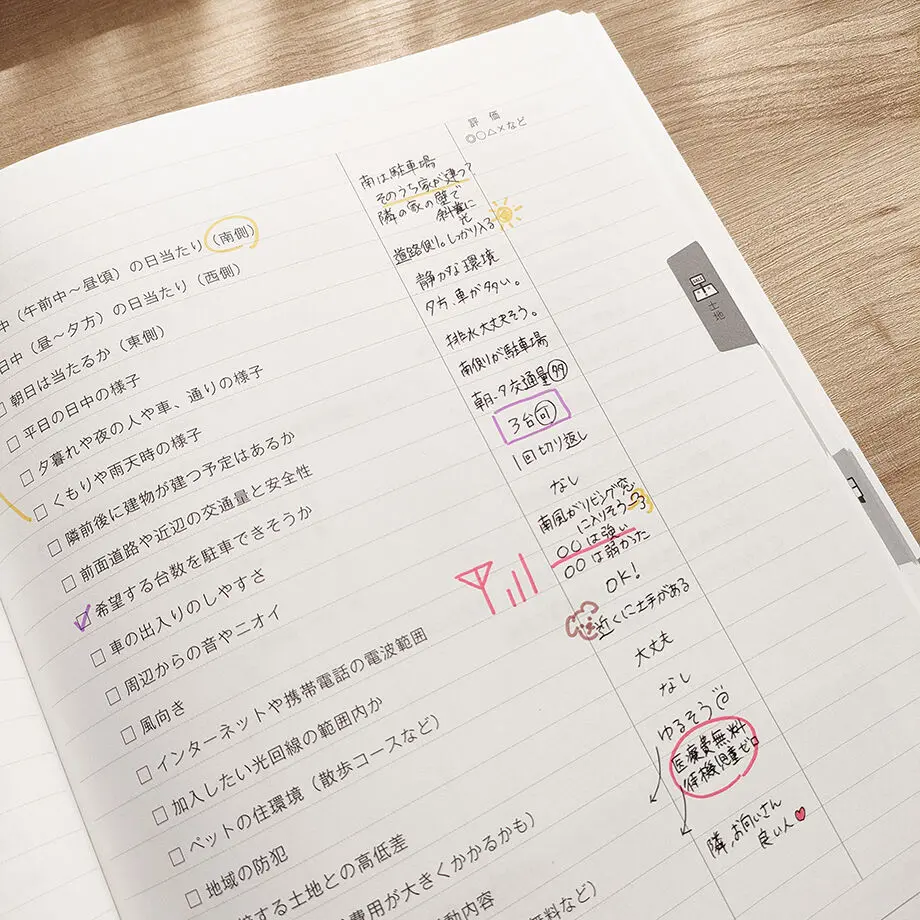 評価
◎○△×など
南は駐車場
そのうち家が建つ?
隣の家の壁で
斜めに
光
道路側り。しっかり入る
静かな環境
夕方、車が多い。
排水大丈夫そう。
南側が駐車場
朝、夕交通量多
3台可
1回切り返し
なし
南風がリビング窓
に入りそう
○○は強い
○○は弱かった
OK!
近くに土手がある
大丈夫
なし
ゆるそう
医療費無料
待機児童ゼロ
隣、お向いさん
良い人
中(午前中〜昼頃)の日当たり(南側)
日中(昼〜夕方)の日当たり(西側)
朝日は当たるか(東側)
平日の日中の様子
夕暮れや夜の人や車、通りの様子
くもりや雨天時の様子
隣前後に建物が建つ予定はあるか
前面道路や近辺の交通量と安全性
希望する台数を駐車できそうか
車の出入りのしやすさ
周辺からの音やニオイ
風向き
インターネットや携帯電話の電波範囲
加入したい光回線の範囲内か
ペットの住環境(散歩コースなど)
地域の防犯
接する土地との高低差
費用が大きくかかるかも)
動内容
無料など)
土地